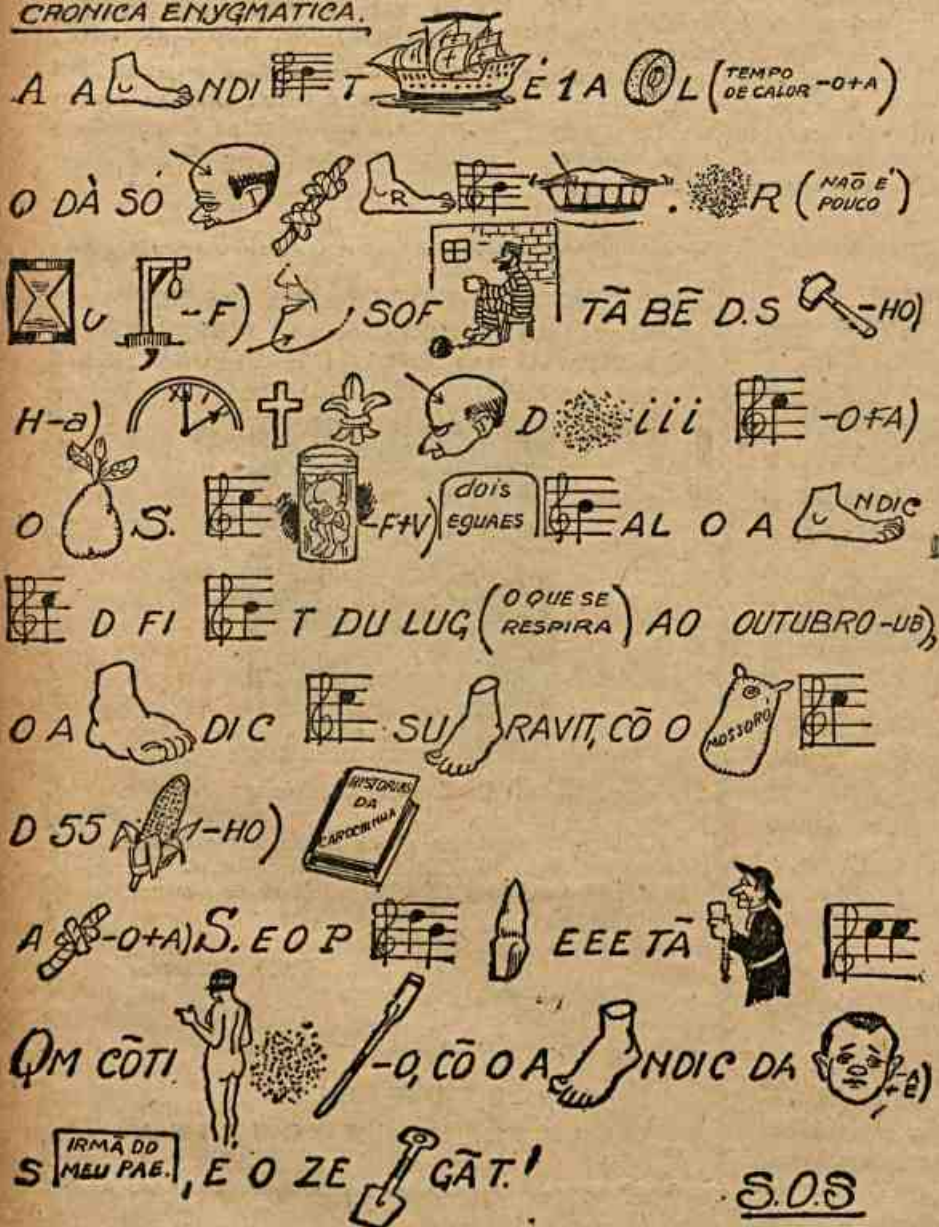 CRONICA ENYGMATICA.
A A NDI T É 1 A L (TEMPO DE CALOR -O+A)
Q DÀ SÓ R . R (NAÕ E' POUCO)
U -F) SOF TÃ BẼ D.S -HO)
H-a) D iii -O+A)
O S. -F+V) dois EGUAES AL O A NDIC
D FI T DU LUG (O QUE SE RESPIRA) AO OUTUBRO-UB),
O A DIC SU RAVIT, CÕ O MOSSORÓ
D 55 -HO) HISTORIAS DA CAROCHINHA
A -O+A) S. E O P EEE TÃ
QM CÕTI -O, CÕ O A NDIC DA -A+E)
S IRMÃ DO MEU PAE., E O ZE GÃT.!
S.O.S